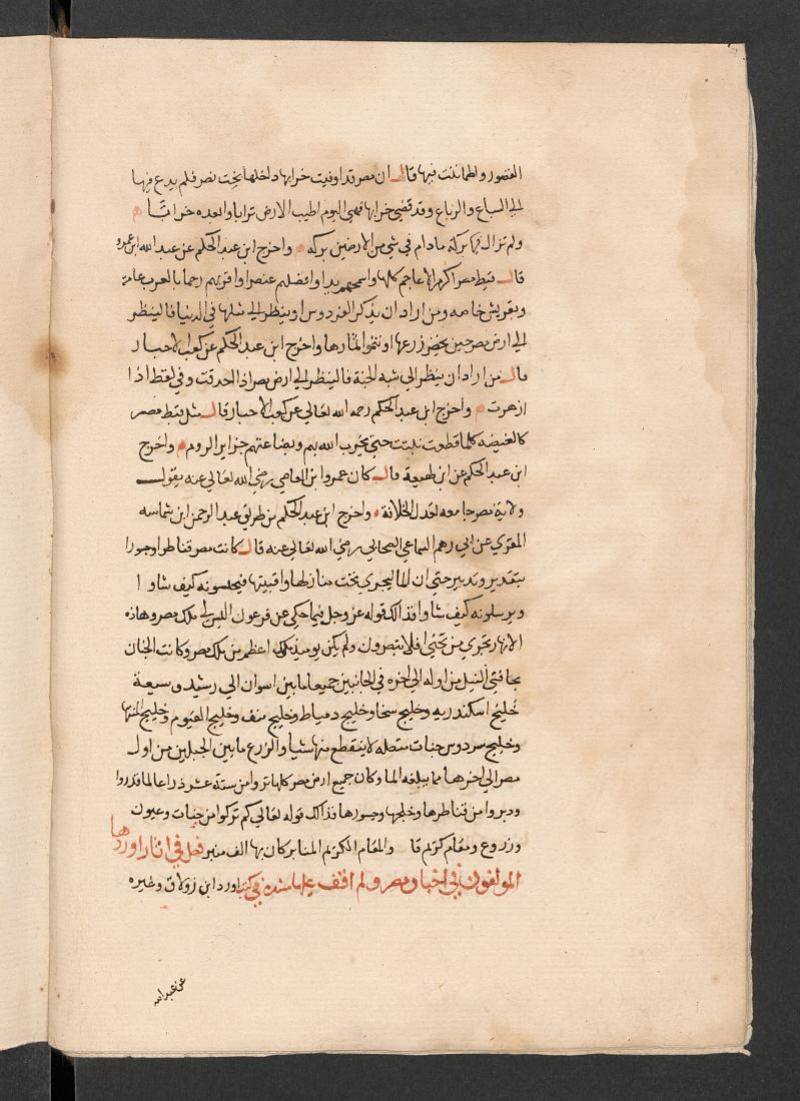 القصور واطمانت فيها قال ان مصر قد اوفيت خرابها دخلها بخت نصر فلم يدع فيها
الا السباع والرباع وقد قضى خرابها فهي اليوم اطيب الارض ترابا وابعده خرابا
ولم تزال فيها بركة مادام في شي من الارضين بركه واخرج ابن عبد الحكم عن عبد الله ابن عمرو
قال قبط مصر اكرم الاعاجم كلها واسمحهم يدا وافضلهم عنصرا واقربهم رحما بالعرب عامة
وبقريش خاصه ومن اراد ان يذكر الفردوس او ينظر الى مثلها في الدنيا فالينظر
الى ارض مصر حين يخضر زرعها وتنموا ثمارها واخرج ابن عبد الحكم عن كعب الاحبار
قال من اراد ان ينظر الي شبه الجنة فالينظر الى ارض مصر اذا احدقت وفي لفظ اذا
ازهرت واخرج ابن عبد الحكم رحمه الله تعالي عن كعب الاحبار قال مثل قبط مصر
كالغيضه كلما قطعت نبتت حتى يخرب الله بهم وبصناعتهم جزاير الروم واخرج
ابن عبد الحكم عن ابن لهيعة قال كان عمروا ابن العاصي رضي الله تعالي عنه يقول
ولاية مصر جامعه تعدل الخلافة واخرج ابن عبد الحكم من طريق عبد الرحمن ابن شماسه
المقري عن ابي رهم السماعي الصحابي رضي الله تعالي عنه قال كانت مصر قناطر اوجورا
بتقدير وتدبير حتي ان الما ليجري تحت منازلها واقبيتها فيحبسونه كيف شاوا
ويرسلونه كيف شاوا فذالك قوله عز وجل فيما حكي عن فرعون اليس لي ملك مصر وهاذه
الانهار تجري من تحتي افلا تبصرون ولم يكن يوميذ ملك اعظم من ملك مصر وكانت الجنان
بحافتي النيل من اوله الى اخره في الجانبين جميعا مابين اسوان الي رشيد وسبعة
خليج اسكندريه وخليج سخا وخليج دمياط وخليج منف وخليج الفيوم وخليج المنها
وخليج سردوس جنات متصله لا ينقطع منها شيا والزرع مابين الجبلين من اول
مصر الى اخرها مما يبلغه الما وكان جميع ارض مصر كلها تروا من ستة عشر ذراعا لما قدروا
ودبروا من قناطرها وخلجها وجسورها فذالك قوله تعالي كم تركوا من جنات وعيون
وزروع ومقام كريم قا والمقام الكريم المنابر كان بها الف منبر فصل في اثار اوردها
المولفون في اخبار مصر ولم اقف عليها مسنده في كتب اورد ابن زولاق وغيره
عن عبد الله